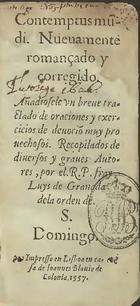 Contemptus mũ
di. Nueuamente
romançado y
corregido.
Añadiosele vn breue tra
ctado de oraciones y exer
cicios de deuoció muy pro
uechosos. Recopilados de
diuersos y graues Auto
res, por el. R. P. fray
Luys de Granada
dela orden de
S.
Domingo.
Impresso en Lixboa en ca
sa de Ioannes Blauio de
Colonia. 1557.